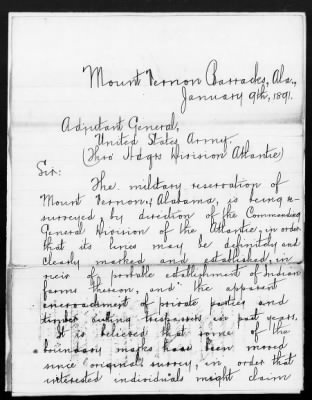 Mount Vernon Barracks, Ala.,
January 9th, 1891.
Adjutant General,
United States Army.
(Thro Hdqrs Division Atlantic)
Sir:
The military reservation of
Mount Vernon, Alabama, is being re-
surveyed by direction of the Commanding
General Division of the Atlantic, in order
that its lines may be definitely and
clearly marked and established, in
view of probable establishment of Indian
farms thereon, and the apparent
encroachment of private parties and
timber cutting trespassers in past years.
It is believed that some of the
boundary marks have been moved
since original survey, in order that
interested individuals might claim